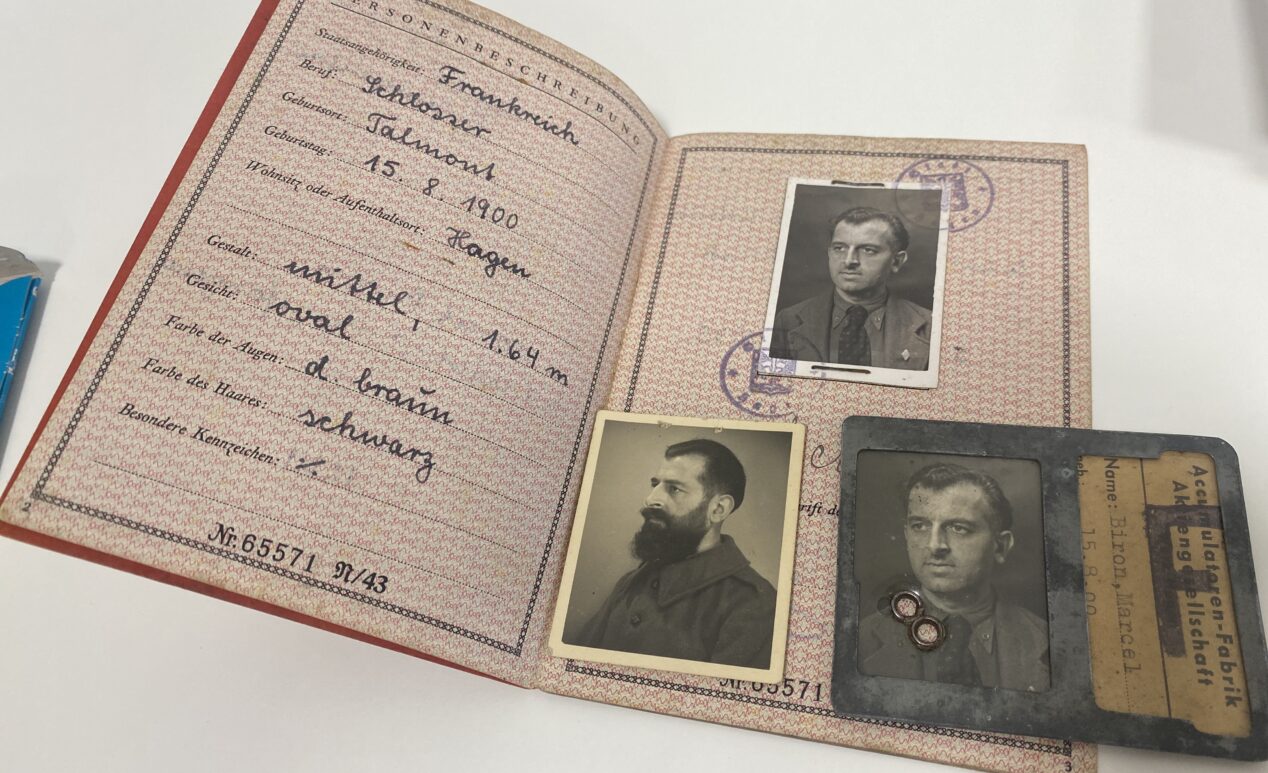 PERSONENBESCHREIBUNG
Staatsangehörigkeit: Frankreich
Beruf: Schlosser
Geburtsort: Talmont
Geburtstag: 15. 8. 1900
Wohnsitz oder Aufenthaltsort: Hagen
Gestalt: mittel, 1.64 m
Gesicht: oval
Farbe der Augen: d. braun
Farbe des Haares: schwarz
Besondere Kennzeichen: ·/·
Nr. 65571 N/43
Nr. 65571
3
Accumulatoren-Fabrik
Aktiengesellschaft
Name: Biron, Marcel
geb.: 15.8.00